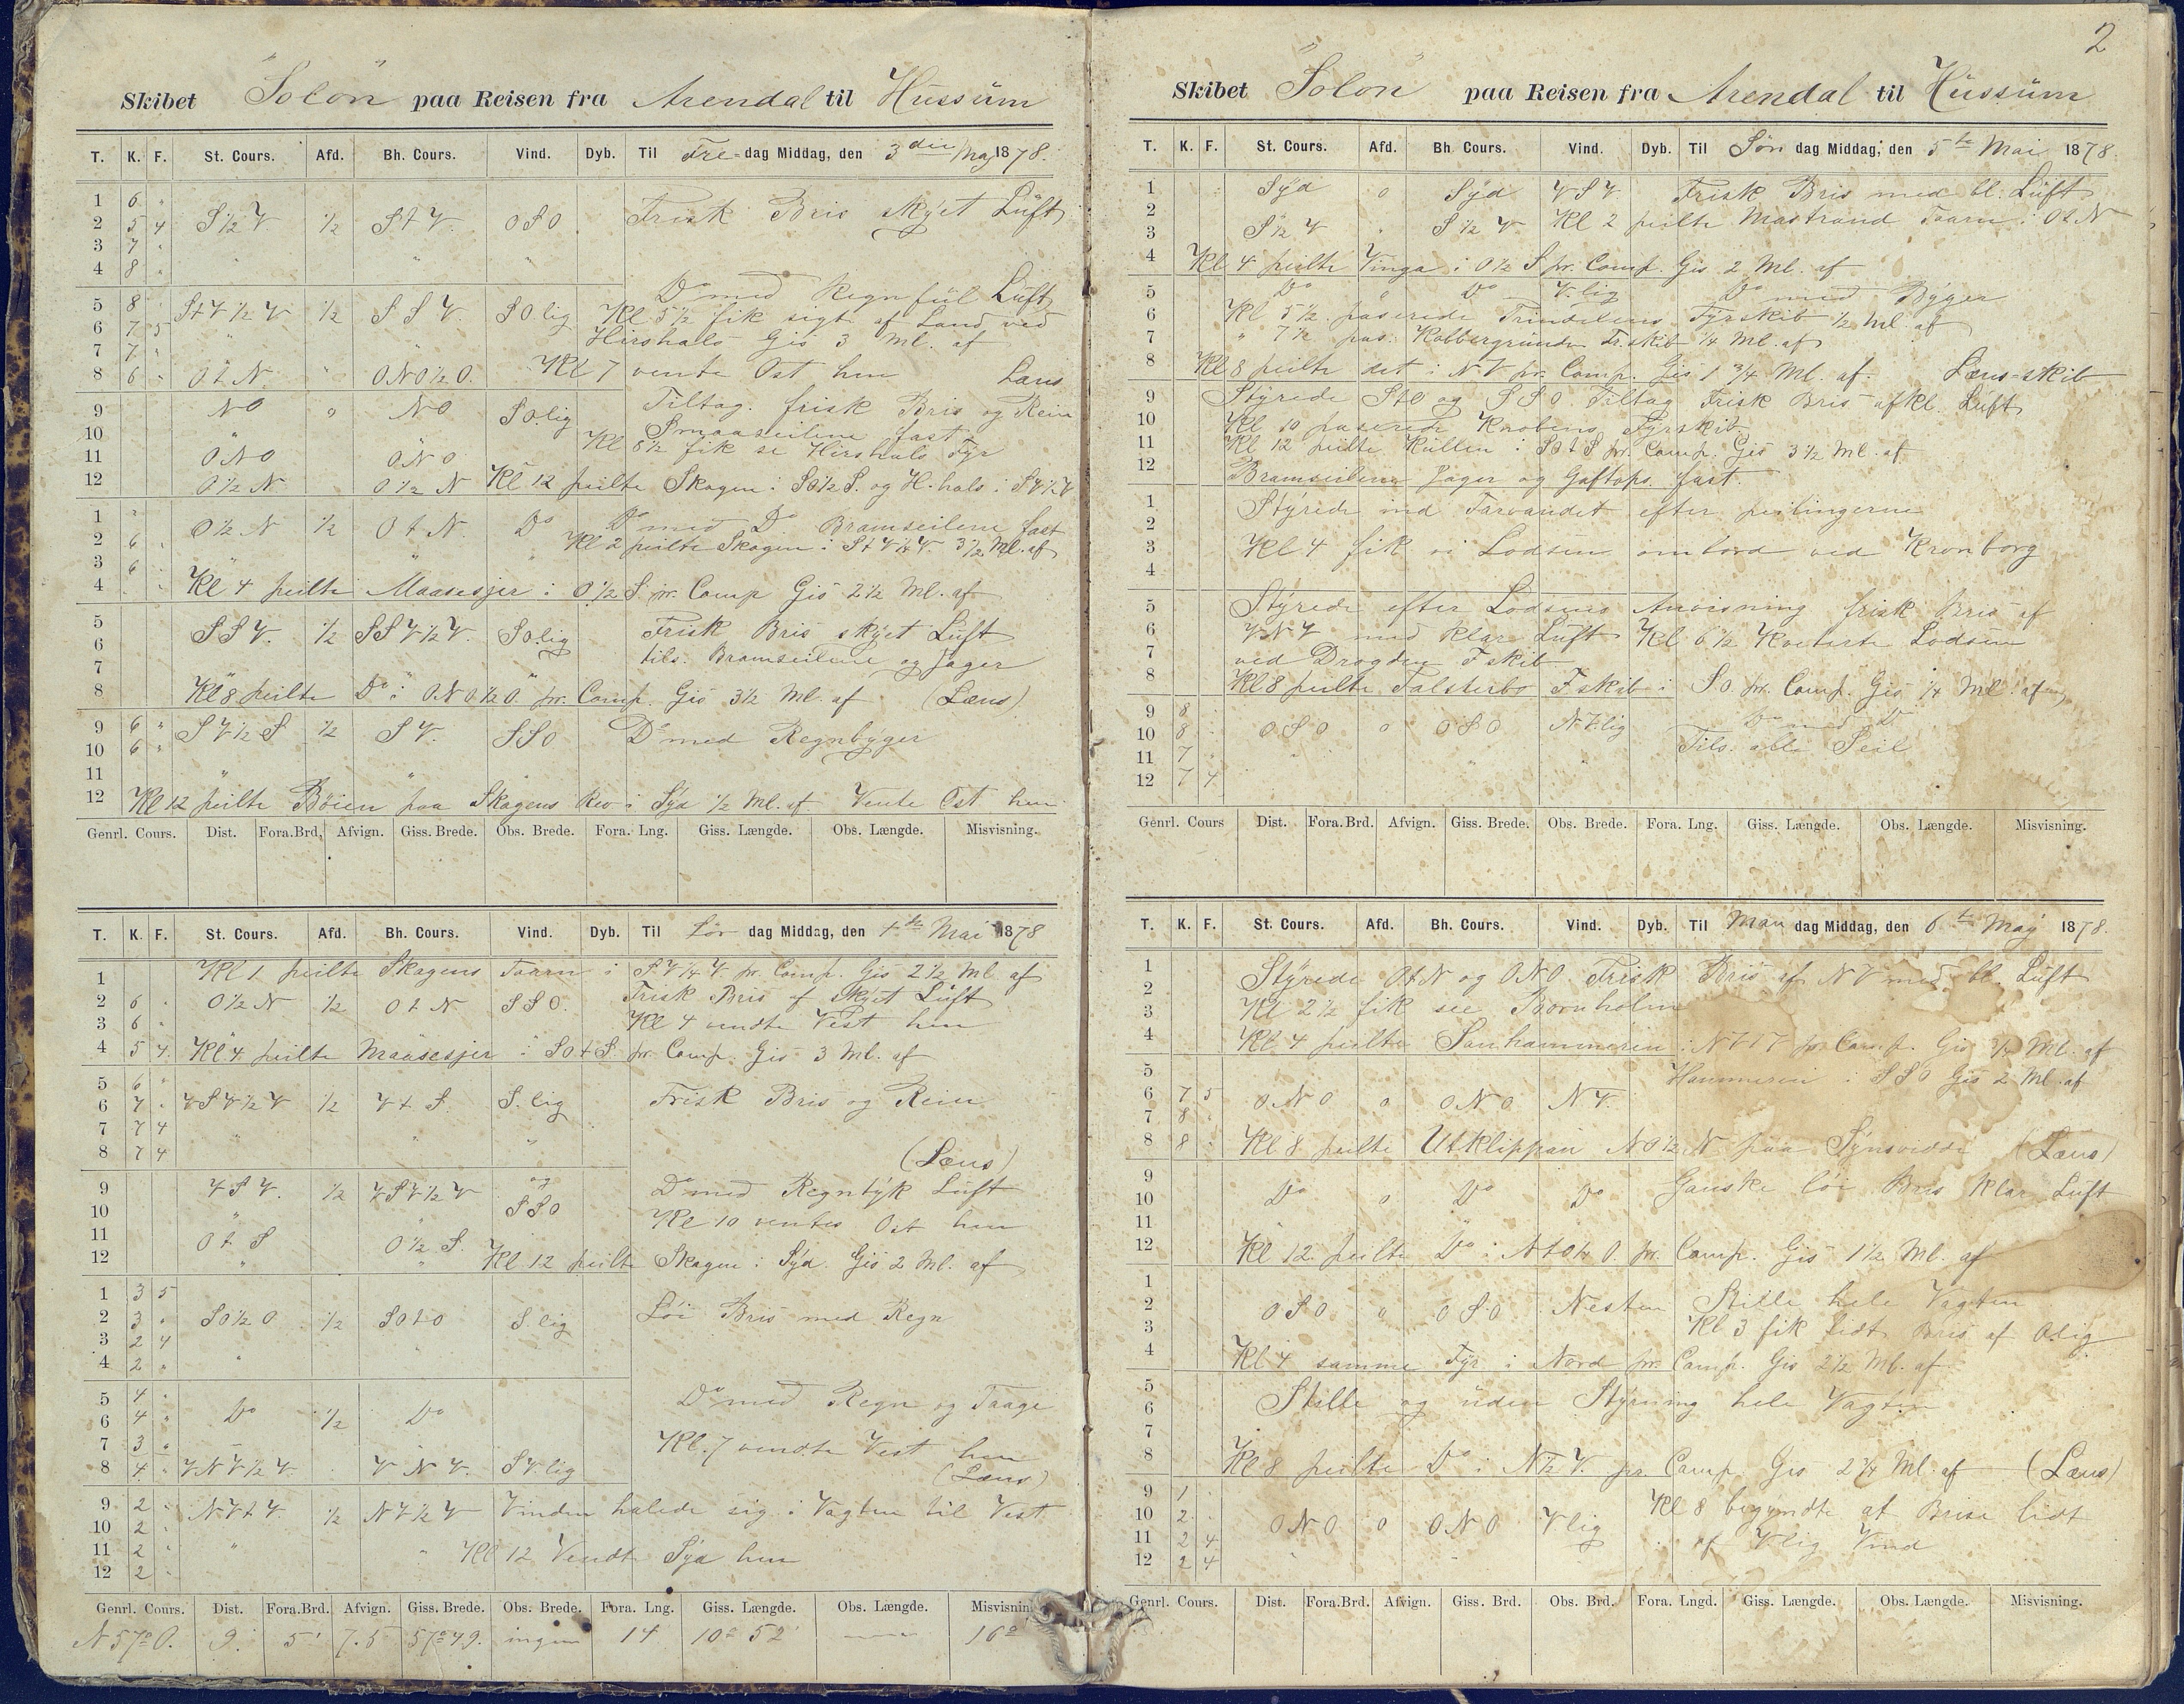 Skibet "Solon" paa Reisen fra Arendal til Hussum
T. K. F. St. Cours. Afd. Bh. Cours. Vind. Dyb. Til Fre-dag Middag, den 3die Maj 1878.
1 6 "
2 5 4 S 1/2 V 1/2 S t V. O S O Frisk Bris skyet Luft
3 7 "
4 8 "
Do med Regnfül Luft
5 8 S t V 1/2 V 1/2 S S V. S O.lig Kl 5 1/2 fik sigt af Land ved
6 7 5 Hirshals Gis 3 Ml. af
7 7 "
8 6 " O t N. " O N O 1/2 O. Kl 7 vendte Ost hen Læns
9 N O " N O S O.lig Tiltag. frisk Bris og Rein
10 Smaaseilene fast
11 O N O O N O Kl 8 1/2 fik se Hirshals Fyr
12 O 1/2 N O 1/2 N Kl 12 peilte Skagen i S O 1/2 S. og H.hals i S V 1/2 V
1 "
2 6 O 1/2 N 1/2 O t N. Do Do med Do Bramseilene fast
3 6 Kl 2 peilte Skagen i S t V 1/4 V. 3 1/2 Ml. af
4 Kl 4 peilte Maasesjer i O 1/2 S pr. Comp Gis 2 1/2 Ml. af
5 S S V. 1/2 S S V 1/2 V. S O.lig Frisk Bris skyet Luft
6 tils. Bramseilene og Jager
7
8 Kl 8 peilte Do i O.N.O. 1/2 O. pr. Comp. Gis 3 1/2 Ml. af (Læns)
9 6 " S V 1/2 S 1/2 S V. S S O Do med Regnbyger
10 6 "
11
12 Kl 12 peilte Böien paa Skagens Rev i Syd 1/2 Ml. af. Vendte Ost hen
Genrl. Cours. Dist. Fora.Brd. Afvign. Giss. Brede. Obs. Brede. Fora. Lng. Giss. Længde. Obs. Længde. Misvisning.
T. K. F. St. Cours. Afd. Bh. Cours. Vind. Dyb. Til Lör dag Middag, den 4de Mai 1878
1 Kl 1 peilte Skagens Taarn i S.V 1/4 V. pr. Comp. Gis 2 1/2 Ml af
2 6 . O 1/2 N 1/2 O t N S S O. Frisk Bris af Skyet Luft
3 6 " Kl 4 vendte Vest hen
4 5 4 Kl 4 peilte Maasesjer i S O t S. pr. Comp. Gis 3 Ml. af
5 6 "
6 7 . V S V 1/2 V 1/2 V t S. S. lig Frisk Bris og Rein
7 7 4
8 7 4 (Læns)
9 V S V. 1/2 V S V 1/2 V og Do med Regntyk Luft
10 S S O Kl 10 ventes Ost hen
11 O t S O 1/2 S.
12 Kl 12 peilte Skagen i Syd. Gis 2 Ml. af
1 3 5
2 3 " S O 1/2 O 1/2 S O t O S. lig Löi Bris med Regn
3 2 4
4 2 "
5 4 "
6 4 " Do 1/2 Do Do med Regn og Taage
7 3 " Kl. 7 vendte Vest hen
8 4 " V N V 1/2 V. V N V. S V.lig (Læns)
9 2 . N V t V. 1/2 N V 1/2 V Vinden halede sig i Vagten til Vest
10 2
11 2 " Kl 12 Vendt Syd hen
12 2
Genrl. Cours. Dist. Fora.Brd. Afvign. Giss. Brede. Obs. Brede. Fora. Lng. Giss. Længde. Obs. Længde. Misvisning
N 57° O. 9. 5' 7.5 57° 49. ingen 14 10° 52' 16°
2
Skibet "Solon" paa Reisen fra Arendal til Hussum
T. K. F. St. Cours. Afd. Bh. Cours. Vind. Dyb. Til Søn dag Middag, den 5te Mai 1878.
1 Syd o Syd V S V. Frisk Bris med bl. Luft
2 Kl 2 peilte Mastrand Taarn i O t N
3 S 1/2 V " S 1/2 V
4 Kl 4 peilte Vinga i O 1/2 S pr. Comp. Gis 2 Ml. af
5 Do " Do V.lig Do med Byger
6 Kl 5 1/2 paserede Trindelens Fyrskib 1/2 Ml. af
7 " 7 1/2 pas. Kobbergrunden Fr.skib 1/4 Ml. af
8 Kl 8 peilte det i N V pr. Comp. Gis 1 3/4 Ml. af. Læns=skib
9 Styrede S t O og S S O. Tiltag Frisk Bris af kl. Luft
10 Kl 10 paserede Knobens Fyrskib
11 Kl 12 peilte Kullen i S O t S pr. Comp. Gis 3 1/2 Ml. af
12 Bramseilene Jager og Gaftops. fast.
1 Styrede ind Farvandet efter peilingerne
2
3 Kl 4 fik vi Lodsen ombord ved Kronborg
4
5 Styrede efter Lodsens Anvisning frisk Bris af
6 V N V med klar Luft Kl 6 1/2 Kviterte Lodsen
7 ved Drogden F skib
8 Kl 8 peilte Falsterbo F skib i S O. pr. Comp. Gis 1/4 Ml. af
9 8 . Do med Do
10 8 . O S O o O S O N V.lig Tils. alle Seil
11 7 .
12 7 4
Genrl. Cours Dist. Fora.Brd. Afvign. Giss. Brede. Obs. Brede. Fora. Lng. Giss. Længde. Obs. Længde. Misvisning.
T. K. F. St. Cours. Afd. Bh. Cours. Vind. Dyb. Til Man dag Middag, den 6te Maj 1878.
1 Styrede O t N og O N O. Frisk Bris af N V med bl. Luft
2
3 Kl 2 1/2 fik see Bornholm
4 Kl 4 peilte Sanhammeren i N V t V pr. Comp. Gis 3/4 Ml. af
5 Hammeren i S S O Gis 2 Ml. af
6 7 5 O N O o O N O N V.
7 8 .
8 8 . Kl 8 peilte Utklippan N O 1/2 N paa Synsvidde (Læns)
9
10 Do o Do Do Ganske löi Bris klar Luft
11
12 Kl 12 peilte Do i N t O 1/4 O. pr. Comp. Gis 1 1/2 Ml. af
1
2 O S O " O S O Nesten Stille hele Vagten
3 Kl 3 fik lidt Bris af O.lig
4 Kl 4 samme Fyr i Nord pr. Comp. Gis 2 1/2 Ml. af
5
6 Stille og uden Styrning hele Vagten
7
8 Kl 8 peilte Do i N 1/2 V. pr. Comp Gis 2 1/4 Ml. af (Læns)
9 1 Kl 8 begyndte at Brise lidt
10 2 . O N O o O N O V lig
11 2 4 af V lig Vind
12 2 4
Genrl. Cours. Dist. Fora.Brd. Afvign. Giss. Brd. Obs. Brd. Fora. Lngd. Giss. Længde. Obs. Længde. Misvisning.